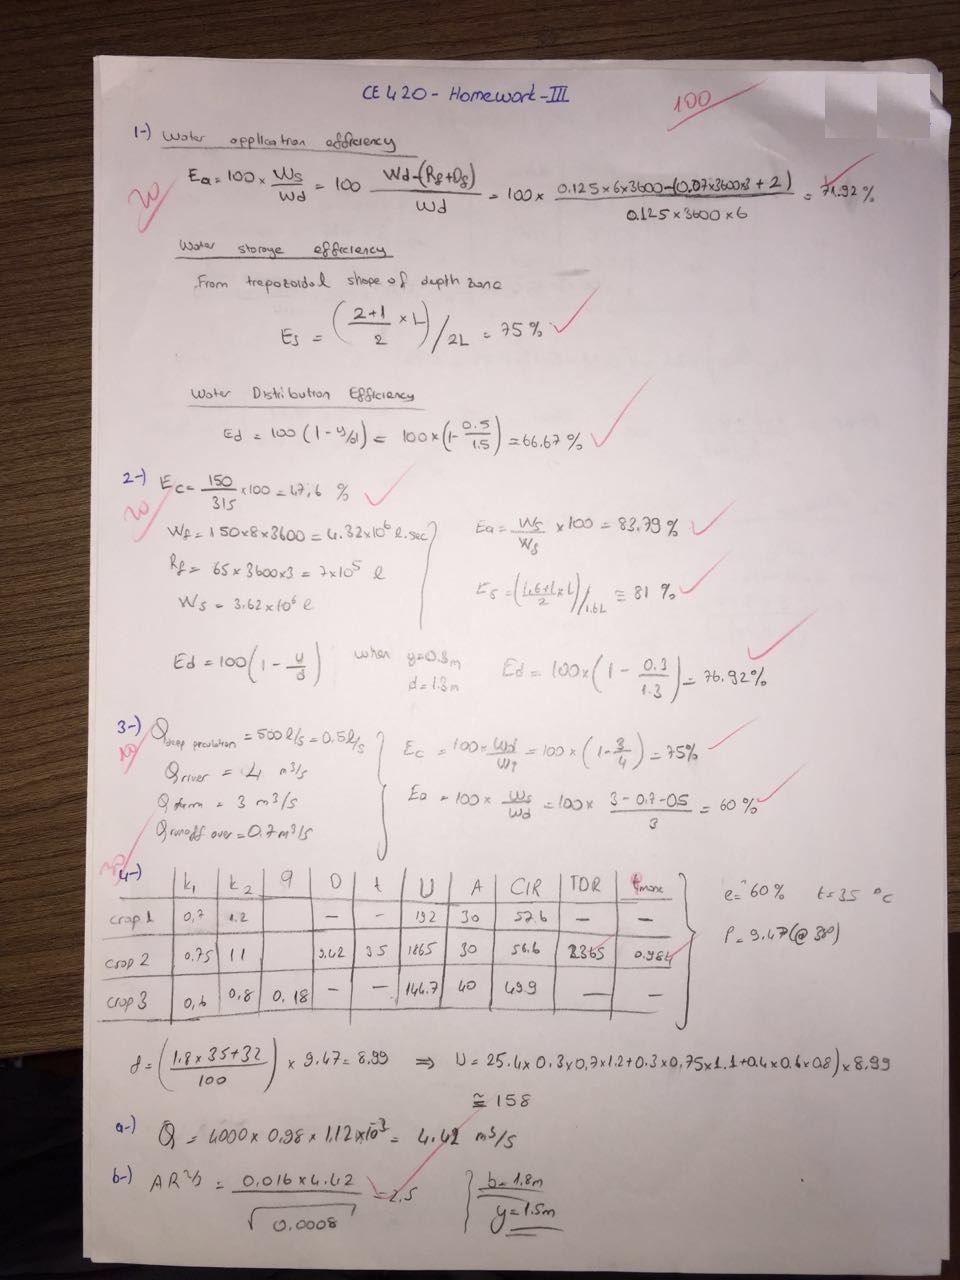 CE 420 - Homework - III
100
1-) Water application efficiency
20
Ea = 100 × Ws/Wd = 100 Wd-(Rf+Df)/Wd = 100 × 0.125×6×3600-(0.07×3600×3+2)/0.125×3600×6 = 71.92 %
Water storage efficiency
From trepozoidal shope of depth zone
Es = (2+1/2 × L)/2L = 75 %
Water Distribution Efficiency
Ed = 100 (1 - y/d) = 100×(1-0.5/1.5) = 66.67 %
2-) Ec = 150/315 ×100 = 47,6 %
20
Wf = 150×8×3600 = 4.32×10⁶ l.sec
Ea = Ws/Wf ×100 = 83.79 %
Rf = 65×3600×3 = 7×10⁵ l
Ws = 3.62×10⁶ l
Es = (1.6+1/2 × L)/1.6L ≅ 81 %
Ed = 100(1 - y/d) when y=0.3m
d = 1.3m
Ed = 100×(1 - 0.3/1.3) = 76.92%
3-) Qdeep perculation = 500 l/s = 0.5 l/s
Ec = 100×Wd/Wr = 100×(1-3/4) = 75%
Qriver = 4 m³/s
Q farm = 3 m³/s
Ea = 100× Ws/Wd = 100× 3-0.7-0.5/3 = 60 %
Qrunoff over = 0.7m³/s
4-)
k1 k2 q D t U A CIR TDR qmax
crop 1 0,7 1.2 – – 192 30 57.6 – –
crop 2 0,75 1.1 9.42 35 30 56.6 0.984
crop 3 0,6 0,8 0,18 – – 146.7 40 49.9 – –
e = 60% t = 35 °C
P = 9.47(@ 38°)
f = (1.8×35+32/100) × 9.47 = 8.99 ⇒ U = 25.4×0.3×0,7×1.2+0.3×0.75×1.1+0.4×0.6×0.8)×8.99
≅ 158
a-) Q = 4000×0.98×1,12×10⁻³ = 4.42 m³/s
b-) AR²/³ = 0,016×4.42/√0.0008 = 2.5
b=1.8m
y=1.5m